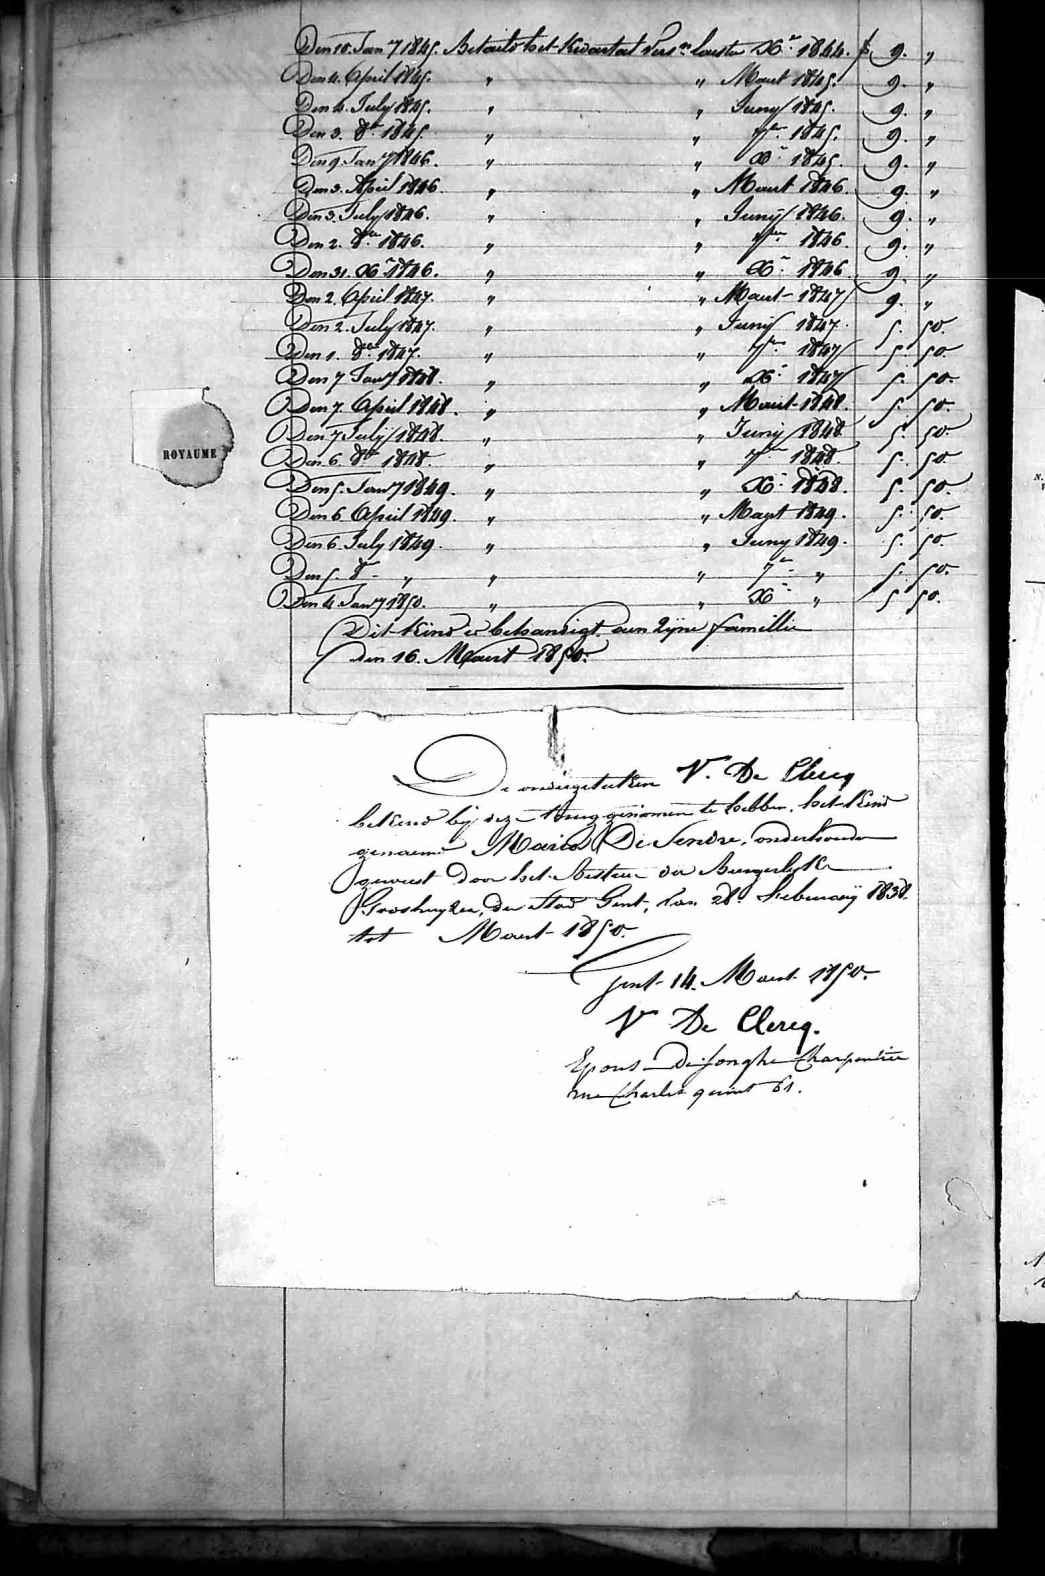 Den 10. Janry 1845. Betaald het kwartaal vers. laesten Xr. 1844. f 9. „
Den 4. April 1845. „ „ Maert 1845. 9. „
Den 4. July 1845. „ „ Juny 1845. 9. „
Den 3. 8er 1845. „ „ 7er 1845. 9. „
Den 9. Janry 1846. „ „ Xr 1845. 9. „
Den 3. April 1846 „ „ Maert 1846. 9. „
Den 3. July 1846. „ „ Juny 1846. 9. „
Den 2. 8er 1846. „ „ 7er 1846. 9. „
Den 31. Xr 1846. „ „ Xr 1846 9. „
Den 2. April 1847. „ „ Maert 1847 9. „
Den 2. July 1847. „ „ Juny 1847. 5. 50.
Den 1. 8er 1847. „ „ 7er 1847 5. 50.
Den 7 Janry 1848. „ „ Xr 1847 5. 50.
Den 7. April 1848. „ „ Maert 1848. 5. 50.
Den 7 July 1848. „ „ Juny 1848 5. 50.
Den 6. 8er 1848. „ „ 7er 1848 5. 50.
Den 5. Janry 1849. „ „ Xr 1848. 5. 50.
Den 6 April 1849. „ „ Maert 1849. 5. 50.
Den 6 July 1849. „ „ Juny 1849. 5. 50.
Den 5. 8r „ „ „ 7r „ 5. 50.
Den 4 Janry 1850. „ „ Xr „ 5 50.
Dit kind is behandigt aen zyne famillie
den 16. Maert 1850.
ROYAUME
De ondergeteeken V. De Clercq
bekend by deze terug genomen te hebben, het kind
genaemd Maria De Vendre, onderhouden
geweest door het Bestuer der Burgerlyke
Godshuyzen, der Stad Gent, van 28 February 1838.
tot Maert 1850.
Gent 14. Maert 1850.
V De Clercq.
Epous Dejonghe Charpentier
rue Charles quint 61.